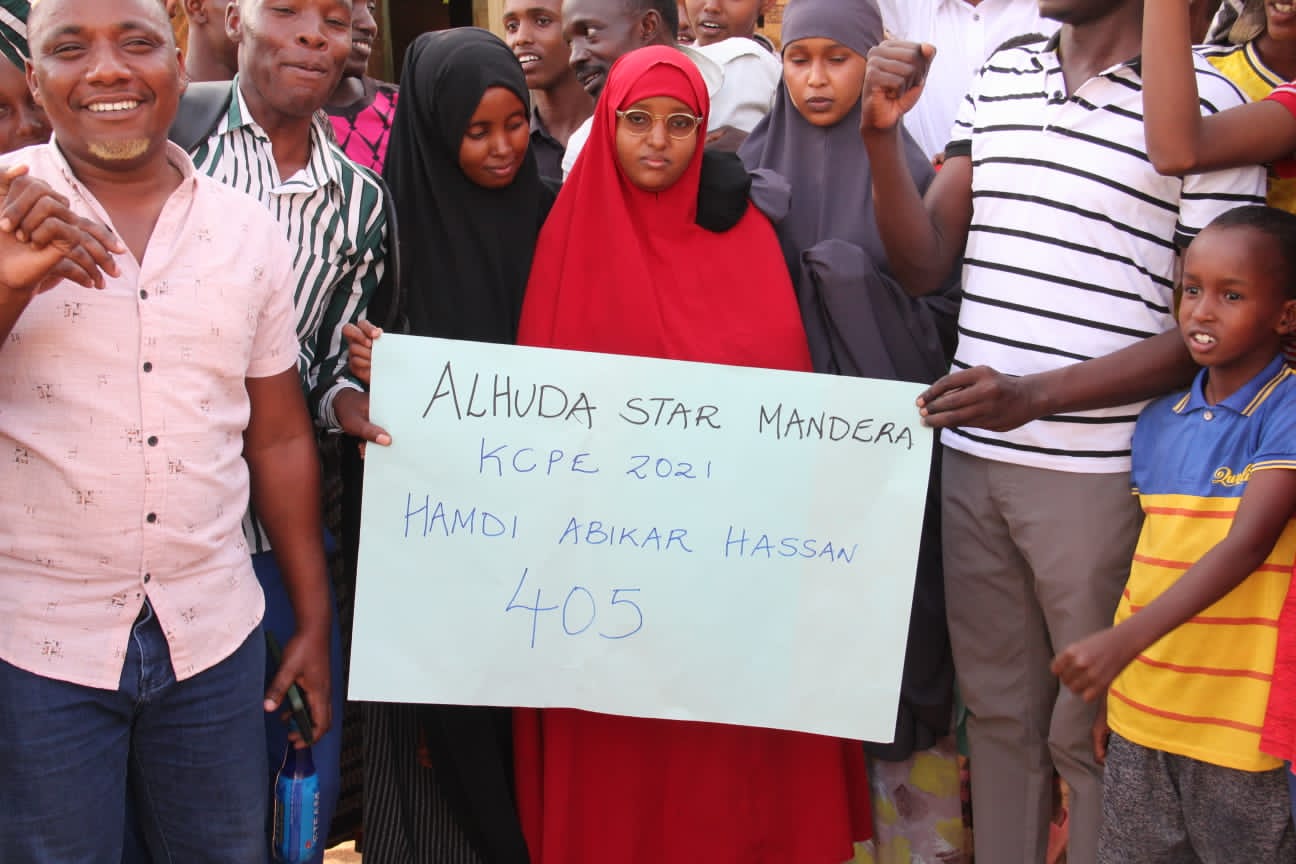 ALHUDA STAR MANDERA
KCPE 2021
HAMDI ABIKAR HASSAN
405